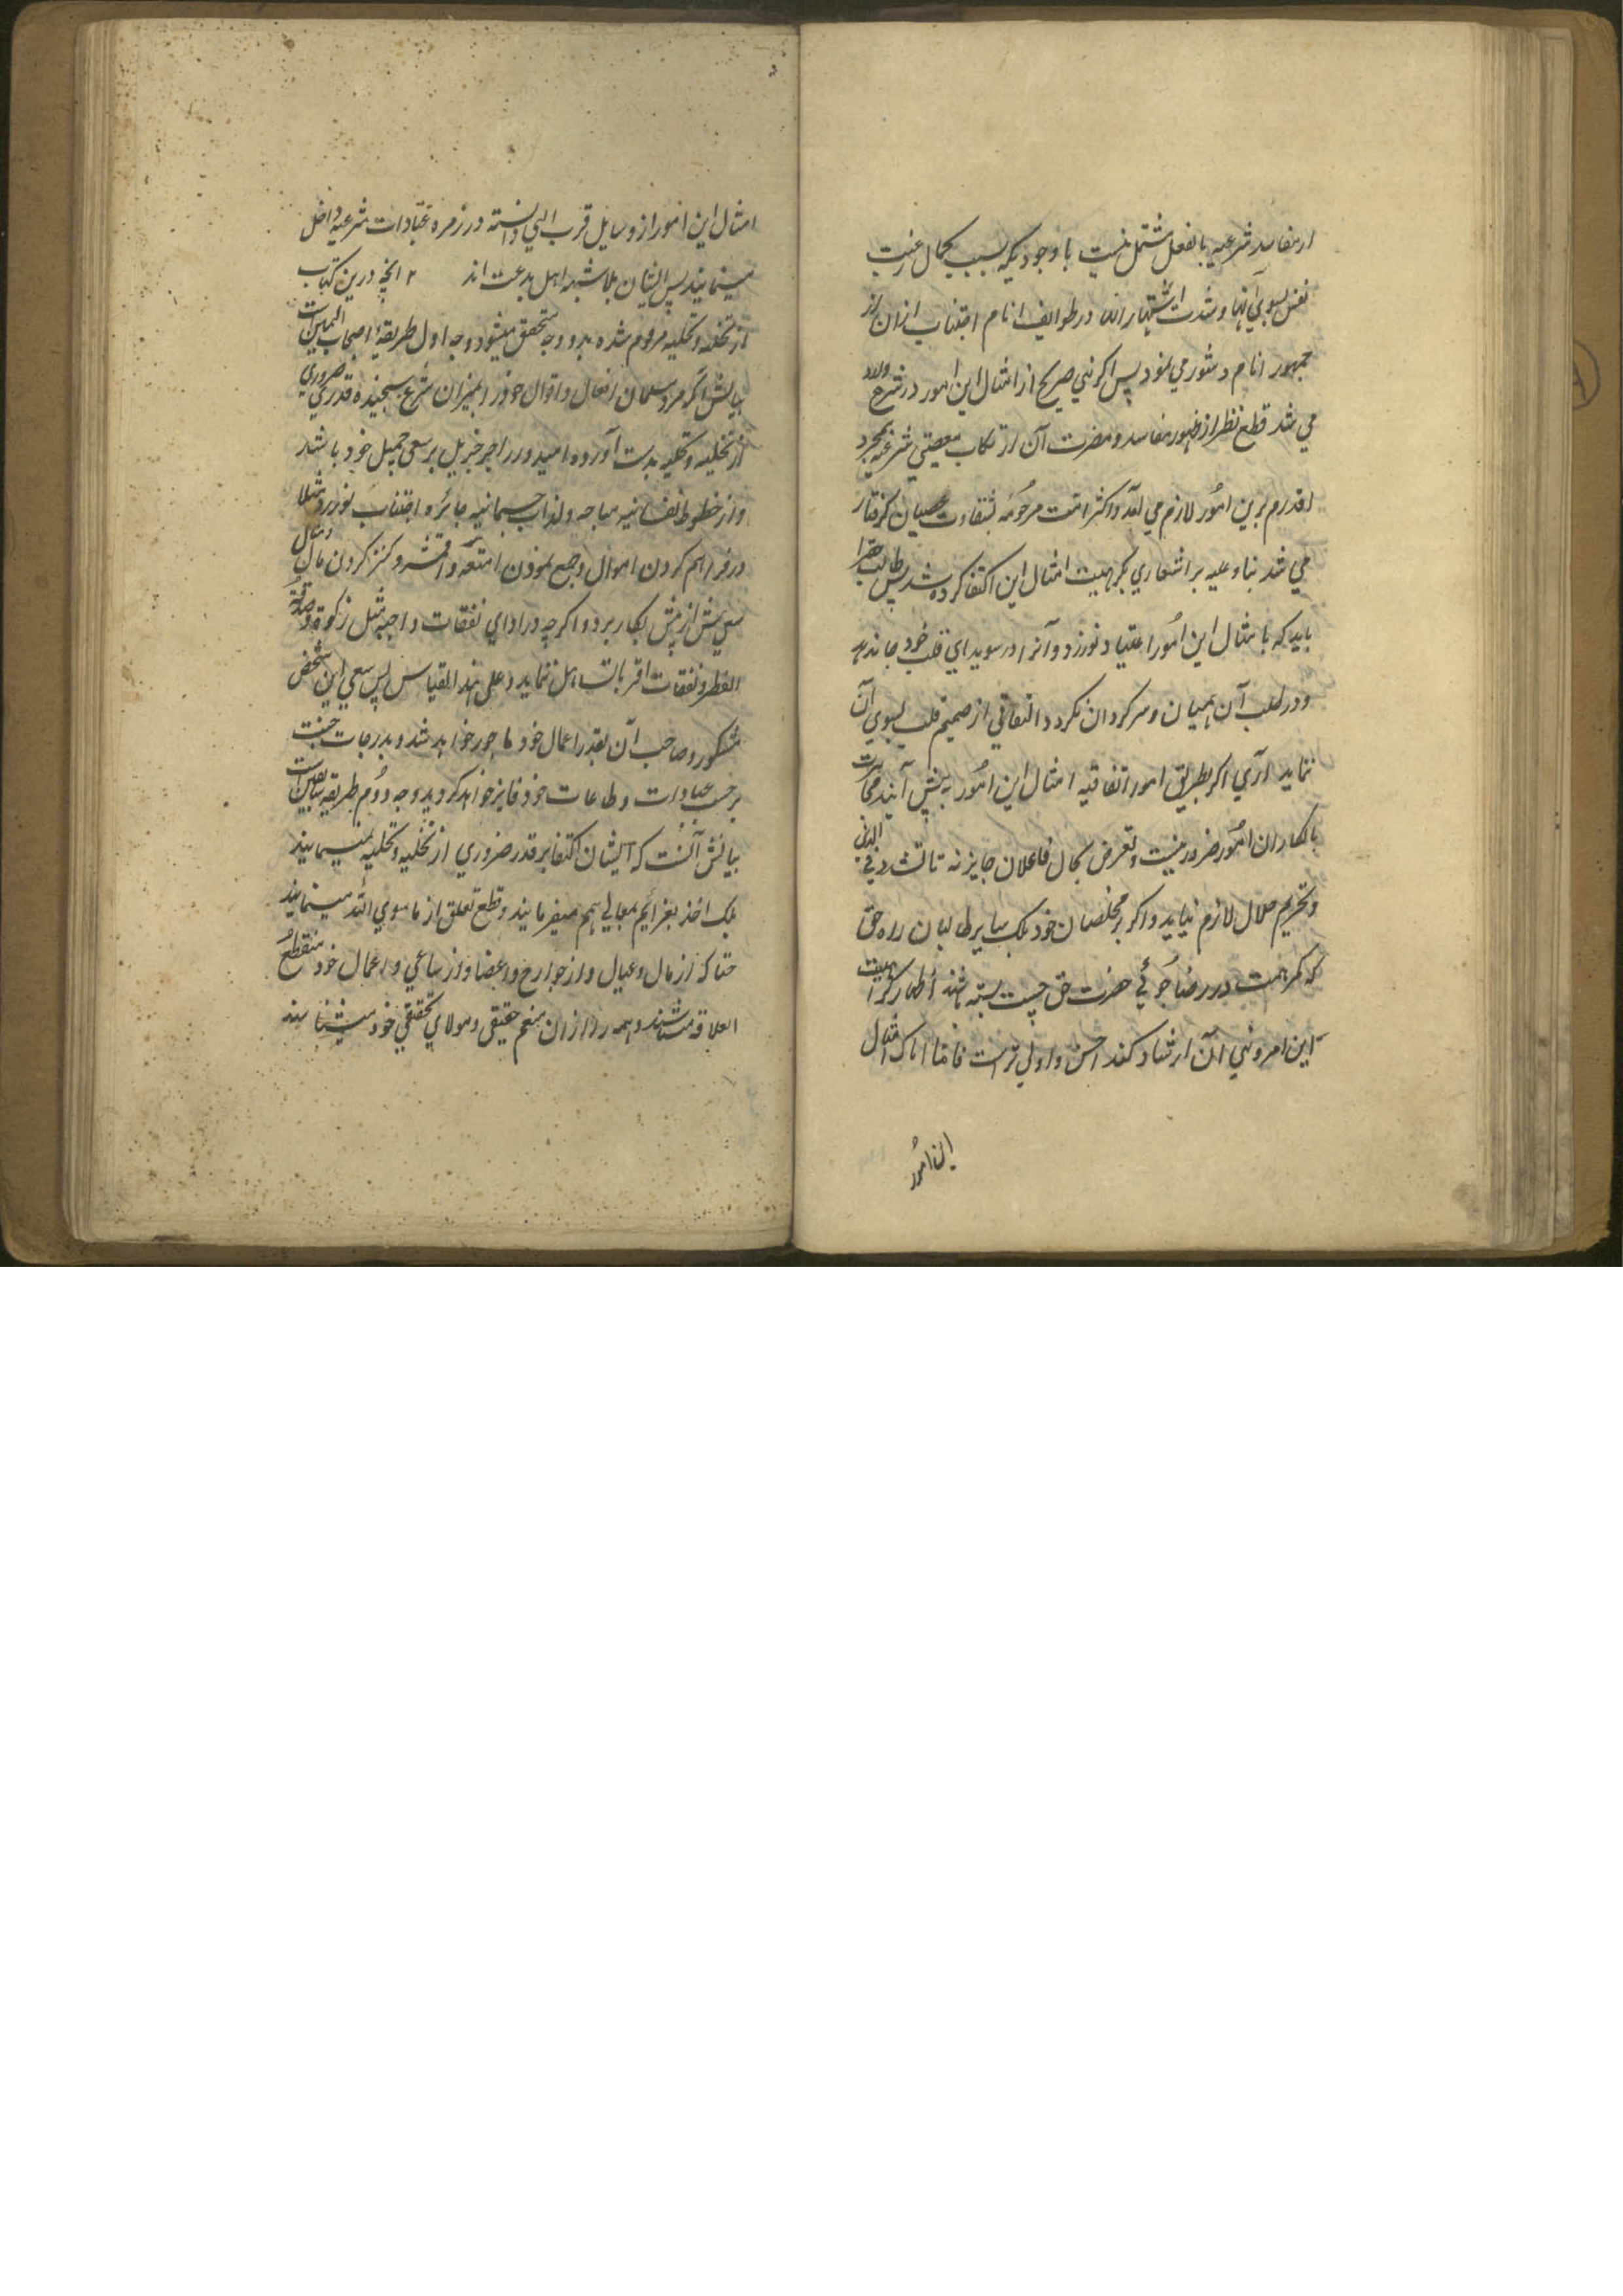 از مفاسد شرعیه بالفعل مشتمل نیست با وجودیکه بسبب کمال رغبت
نفس بسوی آنها و شدت اشتهار آن در طوایف انام اجتناب ازان از
جمهور انام دشوار می نمود پس اگر نهی صریح از امثال این امور در شرع وارد
می شد قطع نظر از ظهور مفاسد و مضرت آن ارتکاب معصیتی شرعیه بمجرد
اقدام برین امور لازم می آمد و اکثر امت مرحومه بشقاوت عصیان گرفتار
می شد بناء علیه بر اشعاری بکراهیت امثال این اکتفا کرده شد پس طالب حق را
باید که با مثال این امور اعتیاد نورزد و آنرا در سویدای قلب خود جا ندهد
و در طلب آن هیمان و سرگردان نگردد و التفاتی از صمیم قلب بسوی آن
ننماید آری اگر بطریق امور اتفاقیه امثال این امور به پیش آیند مجاهرت
بانکار آن امور ضرور نیست و تعرض بحال فاعلان جایز نه تا تشدد فی الدین
و تحریم حلال لازم نیاید و اگر بر مخلصان خود بلک سایر طالبان راه حق
که کمر همت در رضا جوئی حضرت حق چست بسته باشند اظهار کراهیت
این امر و نهی ازان ارشاد کند احسن و اولی تر است فاما اناک امثال
این امور
امثال این امور از وسایل قرب الهی دانسته در زمره عبادات شرعیه داخل
مینمایند پس ایشان بلا شبهه اهل بدعت اند ۲ آنچه درین کتاب
از تخلیه و تحلیه مرقوم شده بدو وجه متحقق میشود وجه اول طریقه اصحاب الیمین است
بیانش اگر مرد مسلمان افعال و اقوال خود را بمیزان شرع سنجیده قدری ضروری
از تخلیه و تحلیه بدست آورده امیدوار اجر جزیل بر سعی جمیل خود باشد
و از حظوظ نفسانیه مباحه و لذات جسمانیه جائزه اجتناب نورزد مثلا
در فراهم کردن اموال و جمع نمودن امتعه و اقمشه و کنز کردن مال و منال
سعی بیش از پیش بکار برد و اگرچه در ادای نفقات واجبه مثل زکوة و صدقة
الفطر و نفقات اقربا تساهل ننماید و علی هذا القیاس پس سعی این شخص
مشکور و صاحب آن بقدر اعمال خود ماجور خواهد شد و بدرجات جنت
بر حسب عبادات و طاعات خود فایز خواهد گردید وجه دوم طریقه سابقین است
بیانش آنست که ایشان اکتفا بر قدر ضروری از تخلیه و تحلیه نمینمایند
بلک اخذ بعزائم معالی هم میفرمایند و قطع تعلق از ماسوی الله مینمایند
حتا که از مال و عیال و از جوارح و اعضا و از مساعی و اعمال خود منقطع
العلاقه میباشند و همه را ازان منعم حقیقی و مولای تحقیقی خود میشناسند